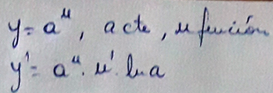 y = a^u, a cte, u función
y' = a^u · u' · ln a